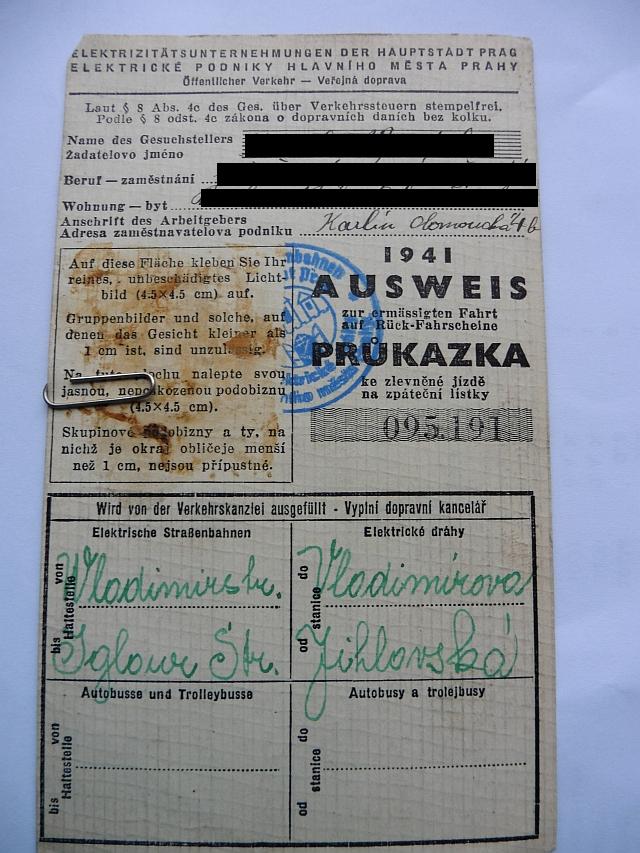 ELEKTRIZITÄTSUNTERNEHMUNGEN DER HAUPTSTADT PRAG
ELEKTRICKÉ PODNIKY HLAVNÍHO MĚSTA PRAHY
Öffentlicher Verkehr — Veřejná doprava
Laut § 8 Abs. 4c des Ges. über Verkehrssteuern stempelfrei.
Podle § 8 odst. 4c zákona o dopravních daních bez kolku.
Name des Gesuchstellers
Žadatelovo jméno
Beruf — zaměstnání
Wohnung — byt
Anschrift des Arbeitgebers
Adresa zaměstnavatelova podniku Karlín Olomoucká
Auf diese Fläche kleben Sie Ihr
reines, unbeschädigtes Licht-
bild (4.5×4.5 cm) auf.
Gruppenbilder und solche, auf
denen das Gesicht kleiner als
1 cm ist, sind unzulässig.
Na tuto plochu nalepte svou
jasnou, nepoškozenou podobiznu
(4.5×4.5 cm).
Skupinové podobizny a ty, na
nichž je okraj obličeje menší
než 1 cm, nejsou přípustné.
1941
AUSWEIS
zur ermässigten Fahrt
auf Rück-Fahrscheine
PRŮKAZKA
ke zlevněné jízdě
na zpáteční lístky
095.191
Wird von der Verkehrskanzlei ausgefüllt - Vyplní dopravní kancelář
Elektrische Straßenbahnen
von
bis
Haltestelle
Vladimirstr.
Iglauer Str.
Elektrické dráhy
do
od
stanice
Vladimírova
Jihlavská
Autobusse und Trolleybusse
von
bis
Haltestelle
Autobusy a trolejbusy
do
od
stanice